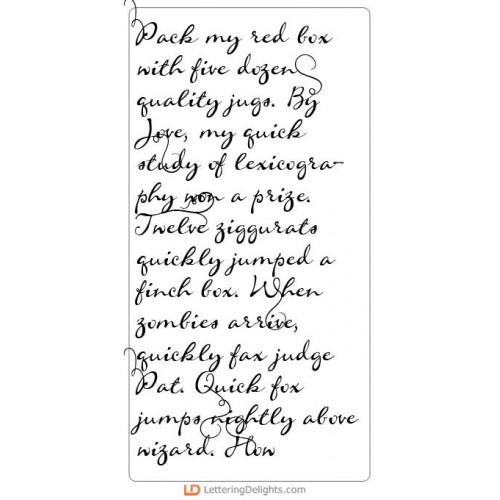 Pack my red box
with five dozen
quality jugs. By
Jove, my quick
study of lexicogra-
phy won a prize.
Twelve ziggurats
quickly jumped a
finch box. When
zombies arrive,
quickly fax judge
Pat. Quick fox
jumps nightly above
wizard. How
LD LetteringDelights.com